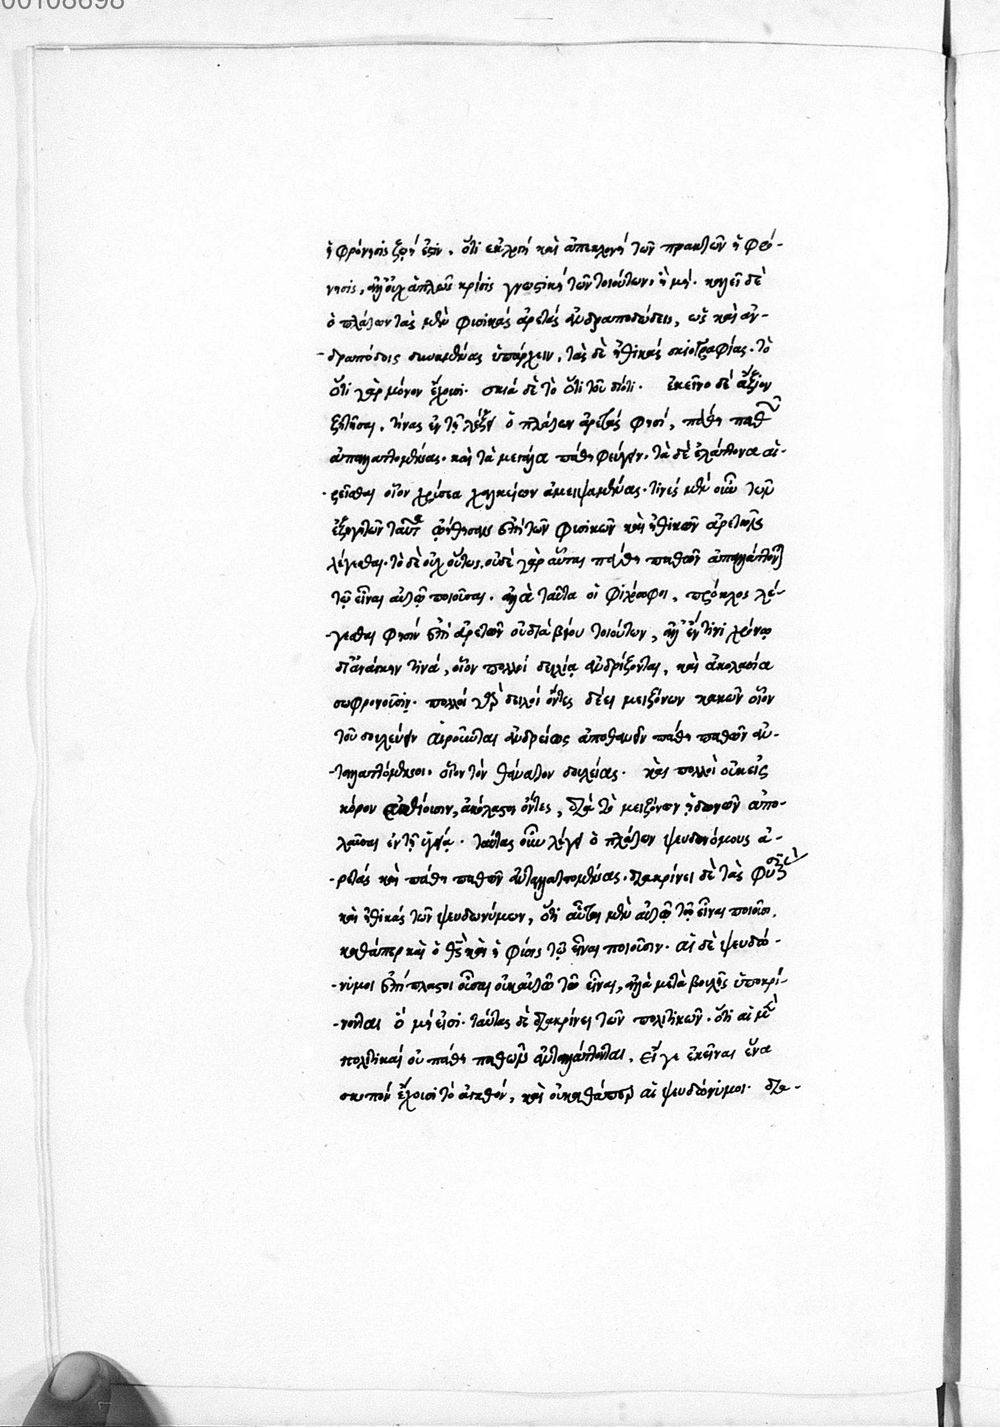 00108698
ἡ φρόνησις ζωή ἐστιν. ὅτι ἐκλογὴ καὶ ἀπεκλογὴ τῶν πρακτῶν ἡ φρό-
νησις, ἀλλ' οὐχ ἁπλῶς κρίσις γνωστικὴ τῶν τοιούτων ἢ μή. καλεῖ δὲ
ὁ πλάτων τὰς μὲν φυσικὰς ἀρετὰς ἀνδραποδώδεις, ὡς καὶ ἀν-
-δραπόδοις δυναμένας ὑπάρχειν, τὰς δὲ ἠθικὰς σκιαγραφίας. τὸ
ὅτι γὰρ μόνον ἔχουσι. σκιὰ δὲ τὸ ὅτι τοῦ διότι. ἐκεῖνο δὲ ἄξιον
ζητῆσαι, τίνας ἐν τῇ λέξει ὁ πλάτων ἀρετάς φησι, πάθη παθῶν
ἀνταλλαττομένας. καὶ τὰ μεγάλα πάθη φεύγειν, τὰ δὲ ἐλάττονα αἱ-
-ρεῖσθαι οἷον χρύσεα χαλκείων ἀμειψαμένας. τινὲς μὲν οὖν τῶν
ἐξηγητῶν ταῦτα ᾠήθησαν ἐπὶ τῶν φυσικῶν καὶ ἠθικῶν ἀρετῶν
λέγεσθαι. τὸ δὲ οὐχ οὕτως. οὐδὲ γὰρ αὗται πάθη παθῶν ἀνταλλάττονται
τῷ εἶναι αὐτῷ ποιοῦσαι. ἀλλὰ ταῦτα οἱ φιλόσοφοι, πρόκλος λέ-
-γεσθαι φησὶν ἐπὶ ἀρετῶν οὐ διὰ βίου τοιούτων, ἀλλ' ἔν τινι χρόνῳ
δι' ἀνάγκην τινά, οἷον πολλοὶ δειλίᾳ ἀνδρίζονται, καὶ ἀκολασίᾳ
σωφρονοῦσιν. πολλοὶ γὰρ δειλοὶ ὄντες δέει μειζόνων κακῶν οἷον
τοῦ δουλεύειν αἱροῦνται ἀνδρείως ἀποθανεῖν πάθη παθῶν ἀν-
-ταλλαττόμενοι. οἷον τὸν θάνατον δουλείας. καὶ πολλοὶ οὐκ εἰς
κόρον ἐσθίουσιν, ἀκόλαστοι ὄντες, διὰ τὸ μειζόνων ἡδονῶν ἀπο-
λαῦσαι ἐν τῇ ὑγείᾳ. ταύτας οὖν λέγει ὁ πλάτων ψευδωνύμους ἀ-
-ρετὰς καὶ πάθη παθῶν ἀνταλλαττομένας. διακρίνει δὲ τὰς φυσικὰς
καὶ ἠθικὰς τῶν ψευδωνύμων, ὅτι αὗται μὲν αὐτῷ τῷ εἶναι ποιοῦσι,
καθάπερ καὶ ὁ θεὸς καὶ ἡ φύσις τῷ εἶναι ποιοῦσιν. αἱ δὲ ψευδώ-
-νυμοι ἐπίπλαστοι οὖσαι οὐκ αὐτῷ τῷ εἶναι, ἀλλὰ μετὰ βουλῆς ὑποκρί-
-νονται ὃ μή εἰσι. ταύτας δὲ διακρίνει τῶν πολιτικῶν. ὅτι αἱ μὲν
πολιτικαὶ οὐ πάθη παθῶν ἀνταλλάττονται. εἴ γε ἐκεῖναι ἕνα
σκοπὸν ἔχουσι τὸ ἀγαθόν, καὶ οὐ καθάπερ αἱ ψευδώνυμοι. δια-